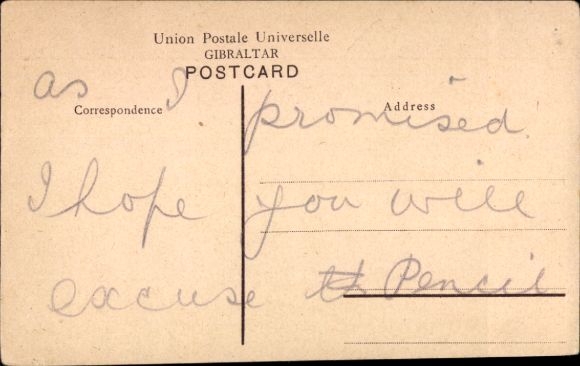 Union Postale Universelle
GIBRALTAR
POSTCARD
Correspondence
Address
as I promised
I hope you will
excuse th Pencil